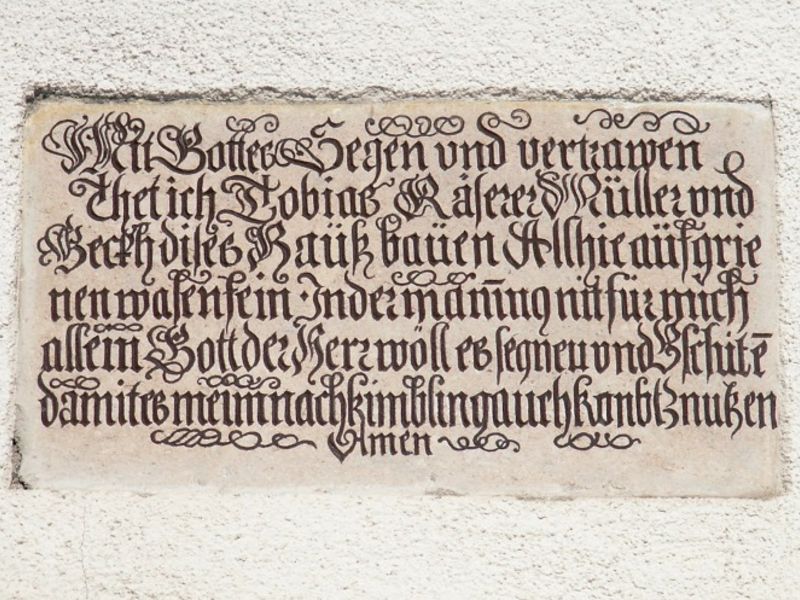 Mit Gottes Segen vnd vertrawen
Thet ich Tobias Käserer Müller vnd
Beckh dises Hauß bauen Allhie auf grie
nen wasen fein Jn der mainung nit für mich
allein Gott der Herr wöll es segnen vnd Bschütē
damit es meim nachkimbling auch konbtz nutzen
Amen